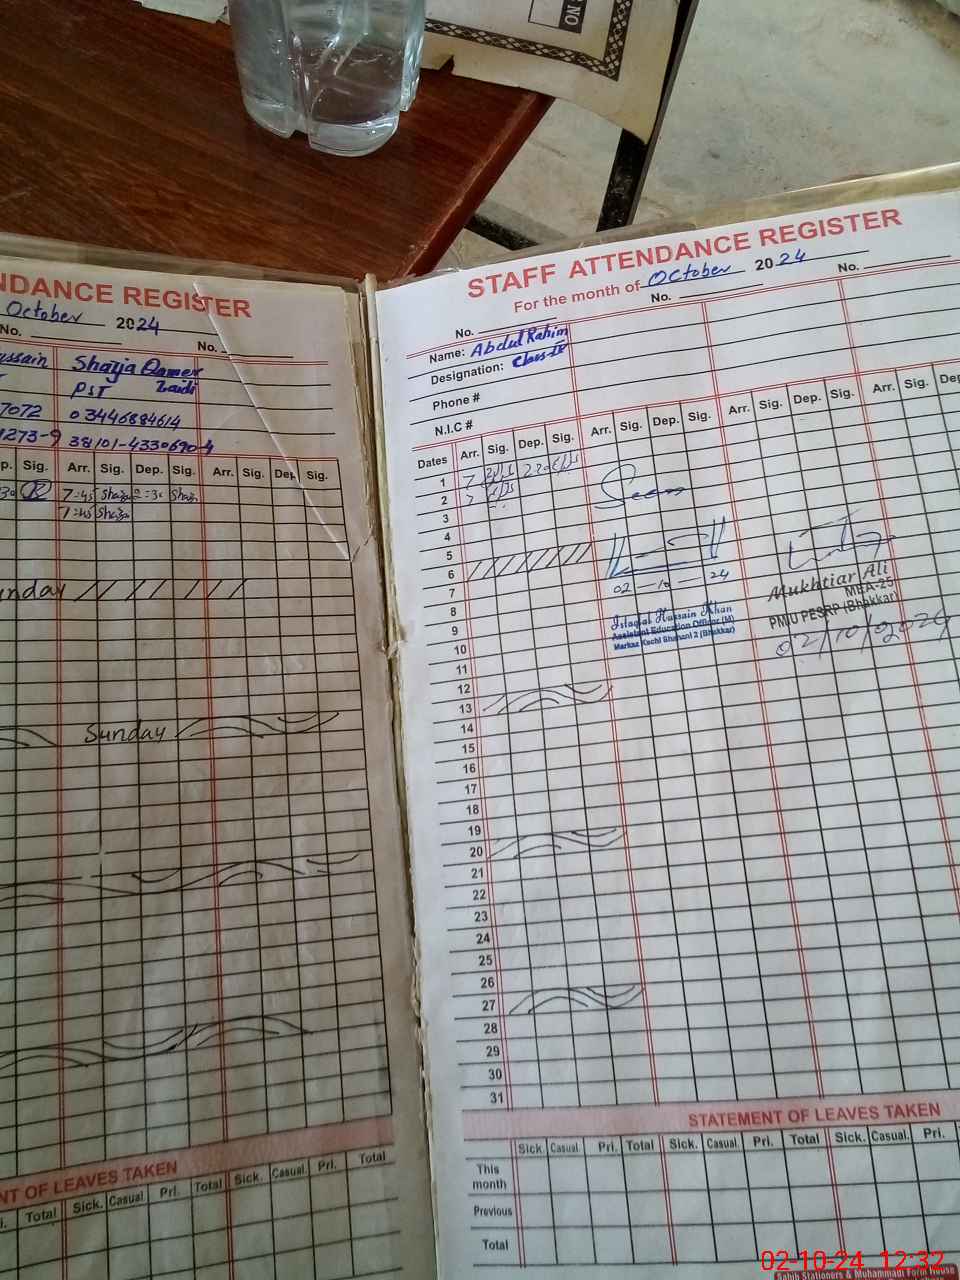 NO
NDANCE REGISTER
October 2024
No. No.
ussain Shazia Qamer
Zaidi
PST
7072 03446884614
1273-9 38101-4330690-4
p. Sig. Arr. Sig. Dep. Sig. Arr. Sig. Dep. Sig.
30 7:45 Shazia 2:30 Shazia
7:45 Shazia
nday
Sunday
NT OF LEAVES TAKEN
i. Total Sick. Casual. Pri. Total Sick. Casual. Pri. Total
STAFF ATTENDANCE REGISTER
For the month of October 2024
No. No. No.
Name: Abdul Rahim
Designation: Class-IV
Phone #
N.I.C #
Dates Arr. Sig. Dep. Sig. Arr. Sig. Dep. Sig. Arr. Sig. Dep. Sig. Arr. Sig. Dep
1 7
2 7
3 Seen
4
5
6
7
8 02-10-24
9 Istaqlal Hussain Khan
Assistant Education Officer (M)
10 Markaz Kechi Shahani 2 (Bhakkar)
Mukhtiar Ali
MEA-25
PMIU PESRP (Bhakkar)
02/10/2024
11
12
13
14
15
16
17
18
19
20
21
22
23
24
25
26
27
28
29
30
31
STATEMENT OF LEAVES TAKEN
Sick. Casual. Pri. Total Sick. Casual. Pri. Total Sick. Casual. Pri.
This month
Previous
Total
Stationers & Muhammadi Form House
02-10-24 12:32